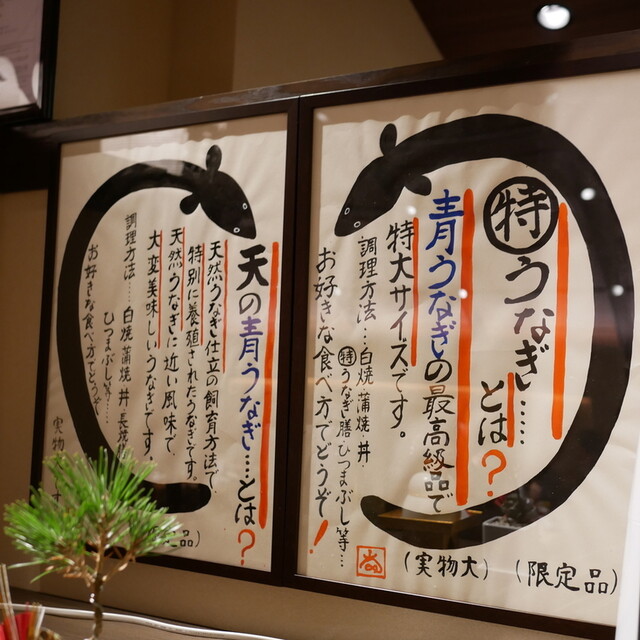 特うなぎ……とは?
青うなぎの最高級品で
特大サイズです。
調理方法…白焼・蒲焼・丼・
特うなぎ膳・ひつまぶし等…
お好きな食べ方でどうぞ!
(実物大)
(限定品)
天の青うなぎ…とは?
天然うなぎ仕立の飼育方法で、
特別に養殖されたうなぎです。
天然うなぎに近い風味で、
大変美味しいうなぎです。
調理方法……白焼・蒲焼・丼・
ひつまぶし等……
お好きな食べ方でどうぞ
実物